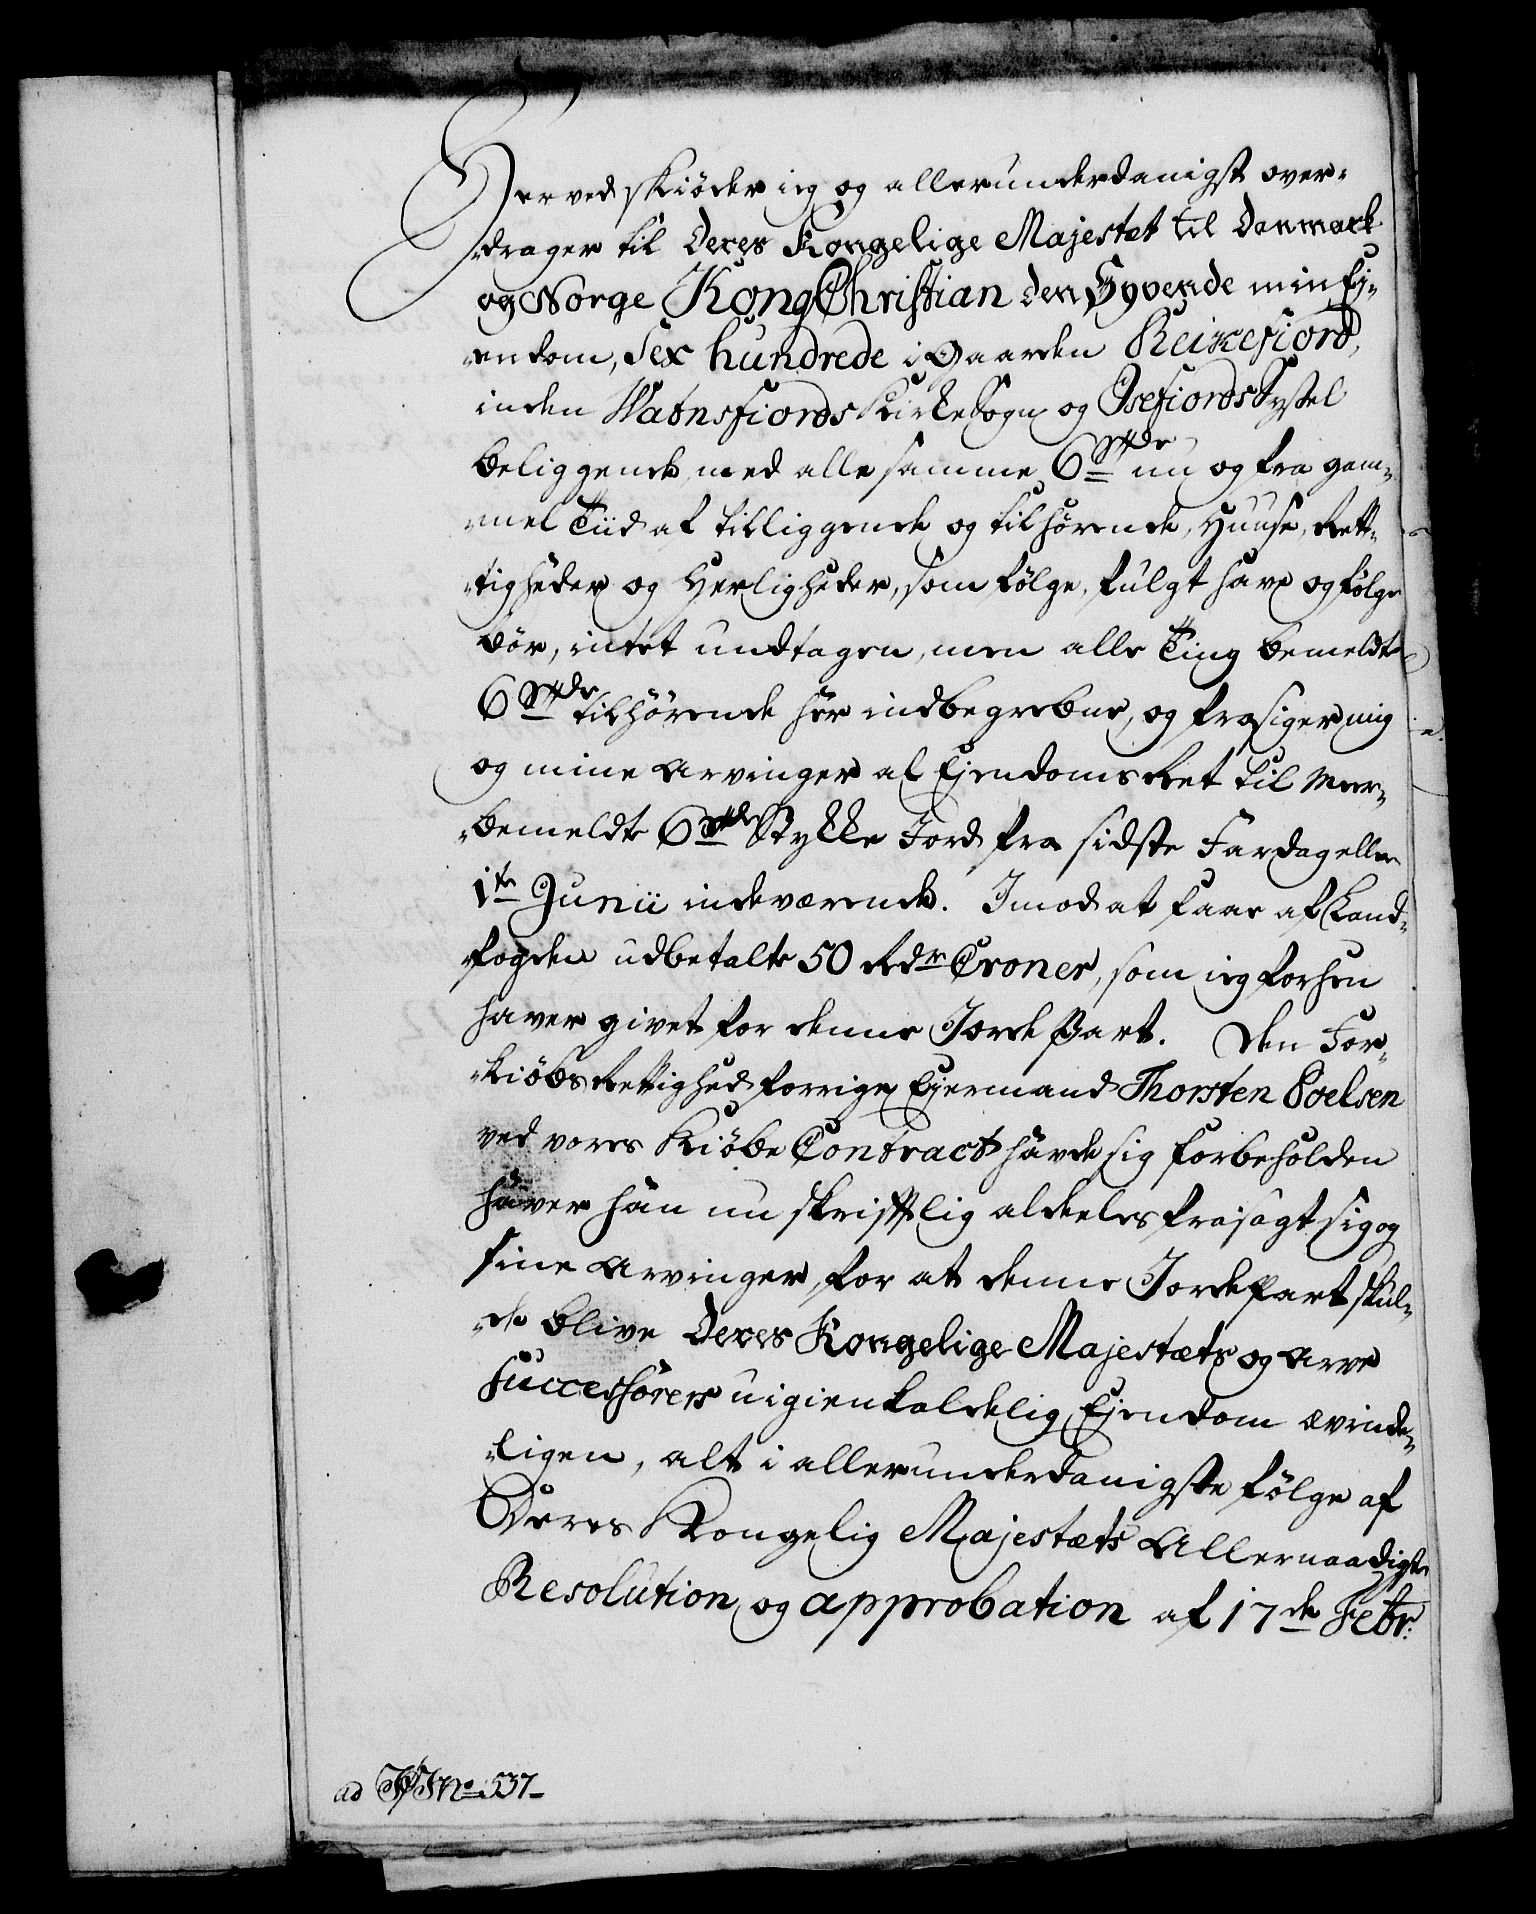 Herved skiøder ieg og allerunderdanigst over-
drager til Deres Kongelige Majestæt til Danmark
og Norge Kong Christian den Syvende min Ej-
endom, Sex hundrede i Gaarden Reikefiord,
inden Watnsfiords Kirke Sogn og Isefiords Syssel
beliggende med alle samme 6 Hdr nu og fra gam-
mel Tiid af tilliggende og tilhørende, Huuse, Rett-
tigheder og Herligheder, som følge, fulgt have og følge
bör, intet undtagen, men alle Ting bemeldte
6 Hdr tilhørende her indbegrebne, og frasiger mig
og mine Arvinger al Ejendoms Ret til meer-
bemeldte 6 Hdr Stykke Jord fra sidste Fardag eller
1te Junii indeværende. Imod at faae af Land-
fogden udbetalte 50 Rdr Croner, som ieg forhen
haver givet for denne Jorde Part. Den For-
kiöbs Rettighed forrige Ejermand Thorsten Poelsen
ved vores Kiöbe Contract havde sig forbeholden
haver han nu skrifftlig aldeeles frasagt sig og
sine Arvinger, for at denne Jordepart skul-
de blive Deres Kongelige Majestæts og Arve
Successorers uigienkaldelig Ejendom ævinde-
ligen, alt i allerunderdanigste følge af
Deres Kongelig Majestæts Allernaadigste
Resolution og approbation af 17de Febr:
ad No 537